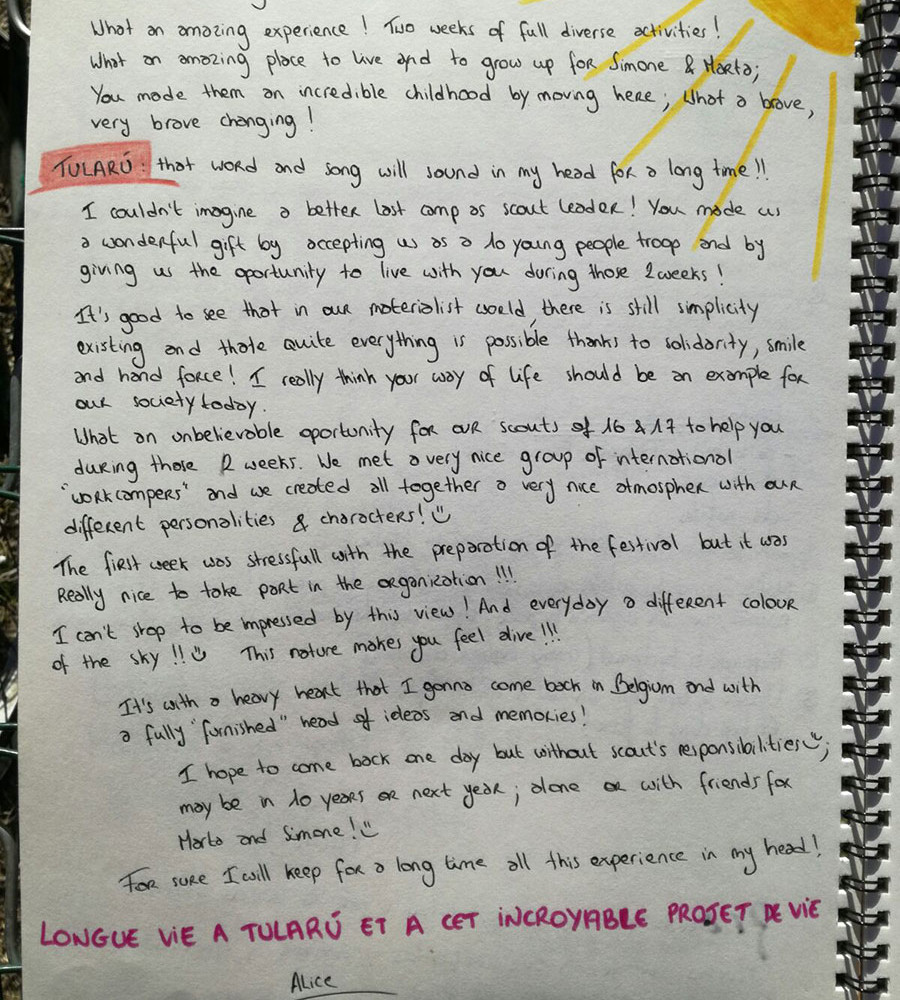 What an amazing experience ! Two weeks of full diverse activities !
What an amazing place to live and to grow up for Simone & Marta;
You made them an incredible childhood by moving here ; What a brave,
very brave changing !
TULARÚ : that word and song will sound in my head for a long time !!
I couldn't imagine a better last camp as scout leader ! You made us
a wonderful gift by accepting us as a 10 young people troop and by
giving us the oportunity to live with you during those 2 weeks !
It's good to see that in our materialist world there is still simplicity
existing and thate quite everything is possible thanks to solidarity, smile
and hand force ! I really think your way of life should be an example for
our society today.
What an unbelievable oportunity for our scouts of 16 & 17 to help you
during those 2 weeks. We met a very nice group of international
"workcampers" and we created all together a very nice atmospher with our
different personalities & characters ! ☺
The first week was stressfull with the preparation of the festival but it was
Really nice to take part in the organization !!!
I can't stop to be impressed by this view ! And everyday a different colour
of the sky !! ☺ This nature makes you feel alive !!!
It's with a heavy heart that I gonna come back in Belgium and with
a fully "furnished" head of ideas and memories !
I hope to come back one day but without scout's responsibilities ☺;
may be in 10 years or next year ; alone or with friends for
Marta and Simone ! ☺
For sure I will keep for a long time all this experience in my head !
LONGUE VIE A TULARÚ ET A CET INCROYABLE PROJET DE VIE
Alice